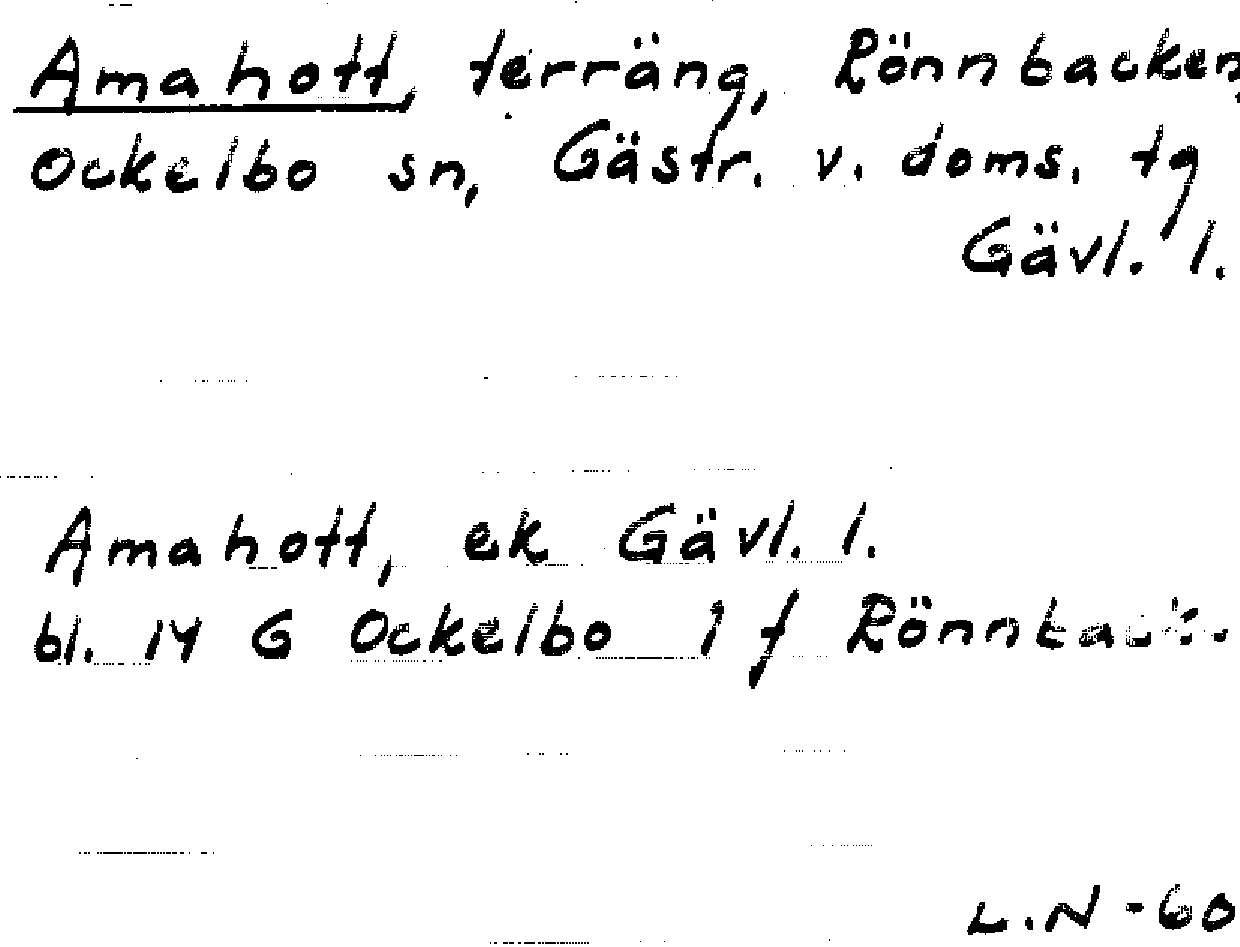 Amahott, terräng, Rönnbacken,
Ockelbo sn, Gästr. v. doms. tg
Gävl. l.
Amahott, ek Gävl. l.
bl. 14 G Ockelbo 1 f
L.N -60